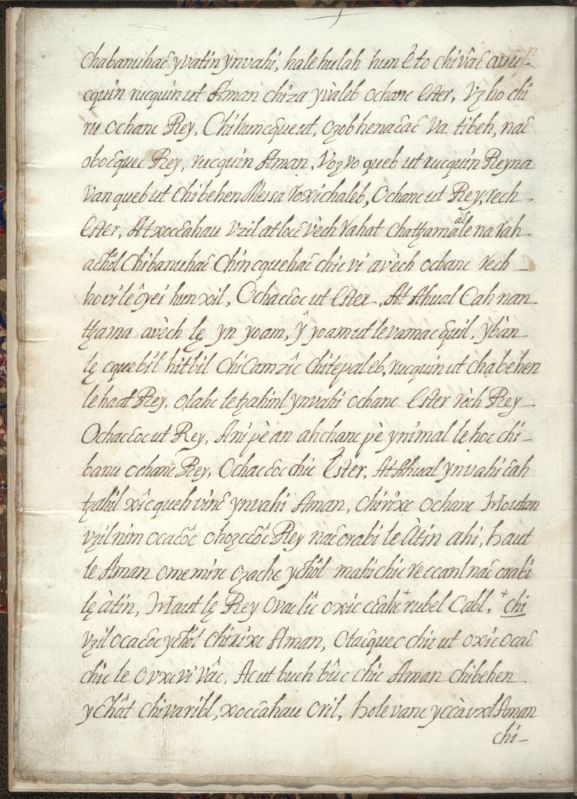 chabanuhac̃ yvatin ynvahi, halehulah hun è to chivâc̃
cquin rucquin ut Aman chiza yvàleb ochanc Ester, Vz ho chi
ru ochanc Rey, Chihuncqueut, ozobhenac̃ac̃ Va tibeh, nac̃
oboc̃quec Rey, rucquin Aman, Vozvo queb ut rucquin Reyna
Van queb ut chibehen Messa roxichaleb, Ochanc ut Rey, rech
Ester, At xoccahau Vzil atloc̃ vèch Vahat chathama ac̃ le na rah
achôl Chibanuhac̃ Chincquehac̃ chic vi avèch ochanc rech
hovilèc̃yei hun xil, Ochac̃oc ut Ester, At Ahual Cah nan
thama avèch le yn yoam, y yoam ut levamac̃quil, ybàn
le cquebil hitbil chiCamzîc chitevaleb, rucquin ut chabehen
le haat Rey, olahc letzahinl ynvahi ochanc Ester rèch Rey
Ochac̃oc ut Rey, Ani pè an ahchanc pè ynimal le hoc chi-
banu ochanc Rey, Ochac̃oc chic Ester, At Ahual ynvahi c̃ah
tzahil xîcqueh vinc̃ ynvahi Aman, chirixc ochanc
Vzil nim ocac̃oc ohozc̃oc Rey nac̃ orabi le àtin ahi, haut
le Aman omemire ozachc ychôl mahichic reccanl nac̃ orabi
le àtin, Haut le Rey ovaclîc oxic cc̃ahc + rubel Cabl, + chi
Vzil ocac̃oc ychôl chirixc Aman, Otac̃quec chic ut oxic ocac̃
chic le ovxc vi vâc, Acut buch bûc chic Aman chibehen
ychât chivaribl, xoccahau cril, hole vanc yccà vxl Aman
chi-